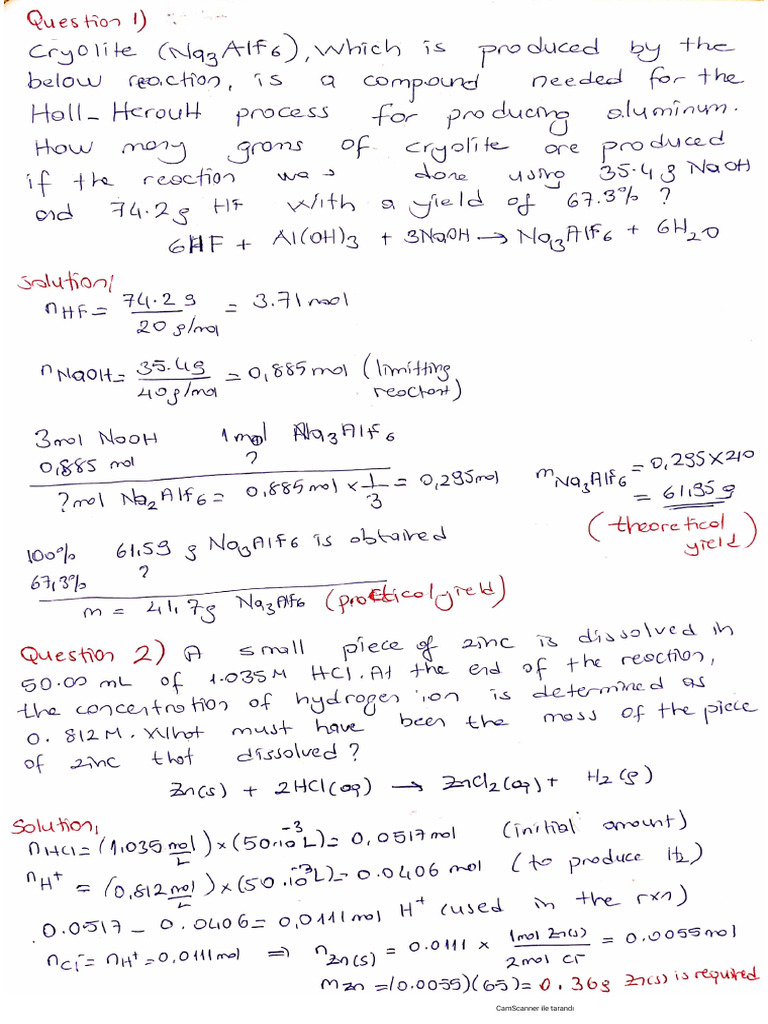 Question 1)
Cryolite (Na3AlF6), which is produced by the
below reaction, is a compound needed for the
Hall-Heroult process for producing aluminum.
How many grams of cryolite are produced
if the reaction was done using 35.4 g NaOH
and 74.2 g HF with a yield of 67.3% ?
6HF + Al(OH)3 + 3NaOH → Na3AlF6 + 6H2O
Solution/
nHF = 74.2 g / 20 g/mol = 3.71 mol
nNaOH = 35.4g / 40g/mol = 0,885 mol (limitting
reactant)
3mol NaOH 1mol Na3AlF6
0,885 mol ?
?mol Na2AlF6 = 0,885mol × 1/3 = 0,295mol
mNa3AlF6 = 0,295×210
= 61,95 g
(theoretical
yield)
100% 61,59 g Na3AlF6 is obtained
67,3% ?
m = 41,7g Na3AlF6 (practical yield)
Question 2) A small piece of zinc is dissolved in
50.00 mL of 1.035M HCl. At the end of the reaction,
the concentration of hydrogen ion is determined as
0.812M. What must have been the mass of the piece
of zinc that dissolved ?
Zn(s) + 2HCl(aq) → ZnCl2(aq) + H2(g)
Solution,
nHCl = (1,035 mol/L) × (50.10^-3 L) = 0,0517 mol (initial amount)
nH+ = (0,812 mol/L) × (50.10^-3 L) = 0.0406 mol (to produce H2)
0.0517 - 0.0406 = 0,0111 mol H+ (used in the rxn)
nCl- = nH+ = 0,0111 mol ⇒ nZn(s) = 0.0111 × 1mol Zn(s) / 2mol Cl- = 0.0055mol
mZn = (0.0055)(65) = 0.36g Zn(s) is required
CamScanner ile tarandı